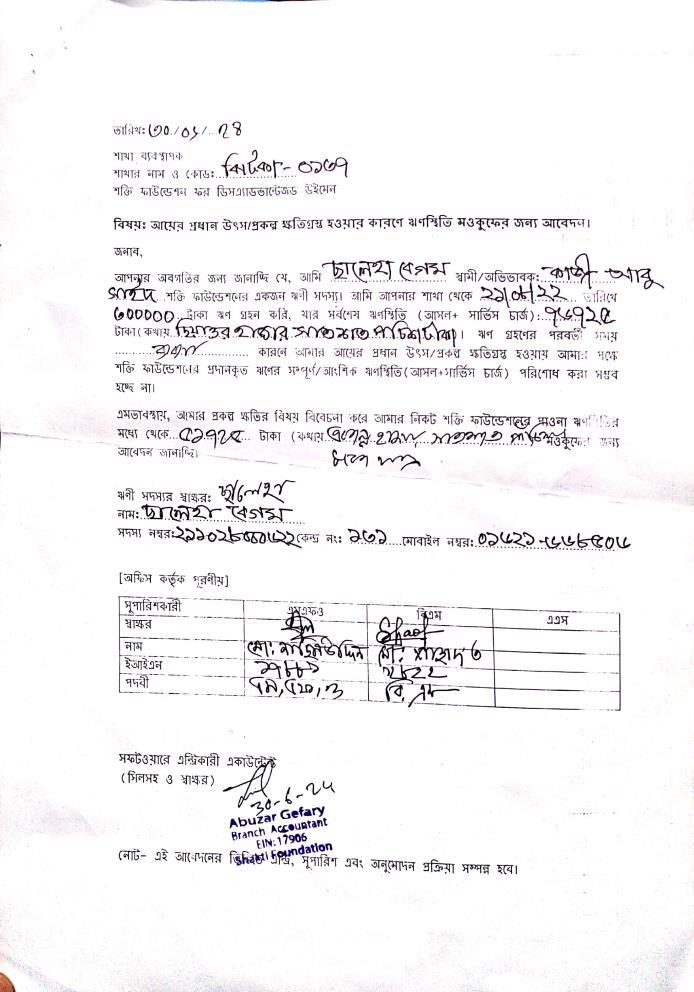 তারিখ: ৩০/০৬/২৪
শাখা ব্যবস্থাপক
শাখার নাম ও কোড: ঝিটকা - ০১৬৭
শক্তি ফাউন্ডেশন ফর ডিসএ্যাডভান্টেজড উইমেন
বিষয়: আয়ের প্রধান উৎস/প্রকল্প ক্ষতিগ্রস্থ হওয়ার কারণে ঋণস্থিতি মওকুফের জন্য আবেদন।
জনাব,
আপনার অবগতির জন্য জানাচ্ছি যে, আমি ছালেহা বেগম স্বামী/অভিভাবক: কাজী আবু
সাইদ শক্তি ফাউন্ডেশনের একজন ঋণী সদস্য। আমি আপনার শাখা থেকে ২১/০৮/২২ তারিখে
৩০০০০০ টাকা ঋণ গ্রহন করি, যার সর্বশেষ ঋণস্থিতি (আসল+ সার্ভিস চার্জ): ৭৬৭২৫
টাকা (কথায় ছিয়াত্তর হাজার সাতশত পচিশ টাকা)। ঋণ গ্রহণের পরবর্তী সময়
কারনে আমার আয়ের প্রধান উৎস/প্রকল্প ক্ষতিগ্রস্থ হওয়ায় আমার পক্ষে
শক্তি ফাউন্ডেশনের প্রদানকৃত ঋণের সম্পূর্ণ/আংশিক ঋণস্থিতি (আসল+সার্ভিস চার্জ) পরিশোধ করা সম্ভব
হচ্ছে না।
এমতাবস্থায়, আমার প্রকল্প ক্ষতির বিষয় বিবেচনা করে আমার নিকট শক্তি ফাউন্ডেশনের পাওনা ঋণস্থিতির
মধ্যে থেকে ৫১৭২৫ টাকা (কথায় হাজার সাতশত পচিশ মওকুফের জন্য
আবেদন জানাচ্ছি।
ঋণী সদস্যর স্বাক্ষর: ছালেহা
নাম: ছালেহা বেগম
সদস্য নম্বর: কেন্দ্র নং: ১৩১ মোবাইল নম্বর:
[অফিস কর্তৃক পূরণীয়]
সুপারিশকারী এমএফও বিএম এএস
স্বাক্ষর
নাম মো: নাজিমউদ্দিন মো: সাহাদত
ইআইএন
পদবী এম, এফ, ও বি, এম
সফটওয়ারে এন্ট্রিকারী একাউন্টেন্ট
(সিলসহ ও স্বাক্ষর)
30-6-24
Abuzar Gefary
Branch Accountant
EIN: 17906
Shakti Foundation
নোট- এই আবেদনের ভিত্তিতে এন্ট্রি, সুপারিশ এবং অনুমোদন প্রক্রিয়া সম্পন্ন হবে।